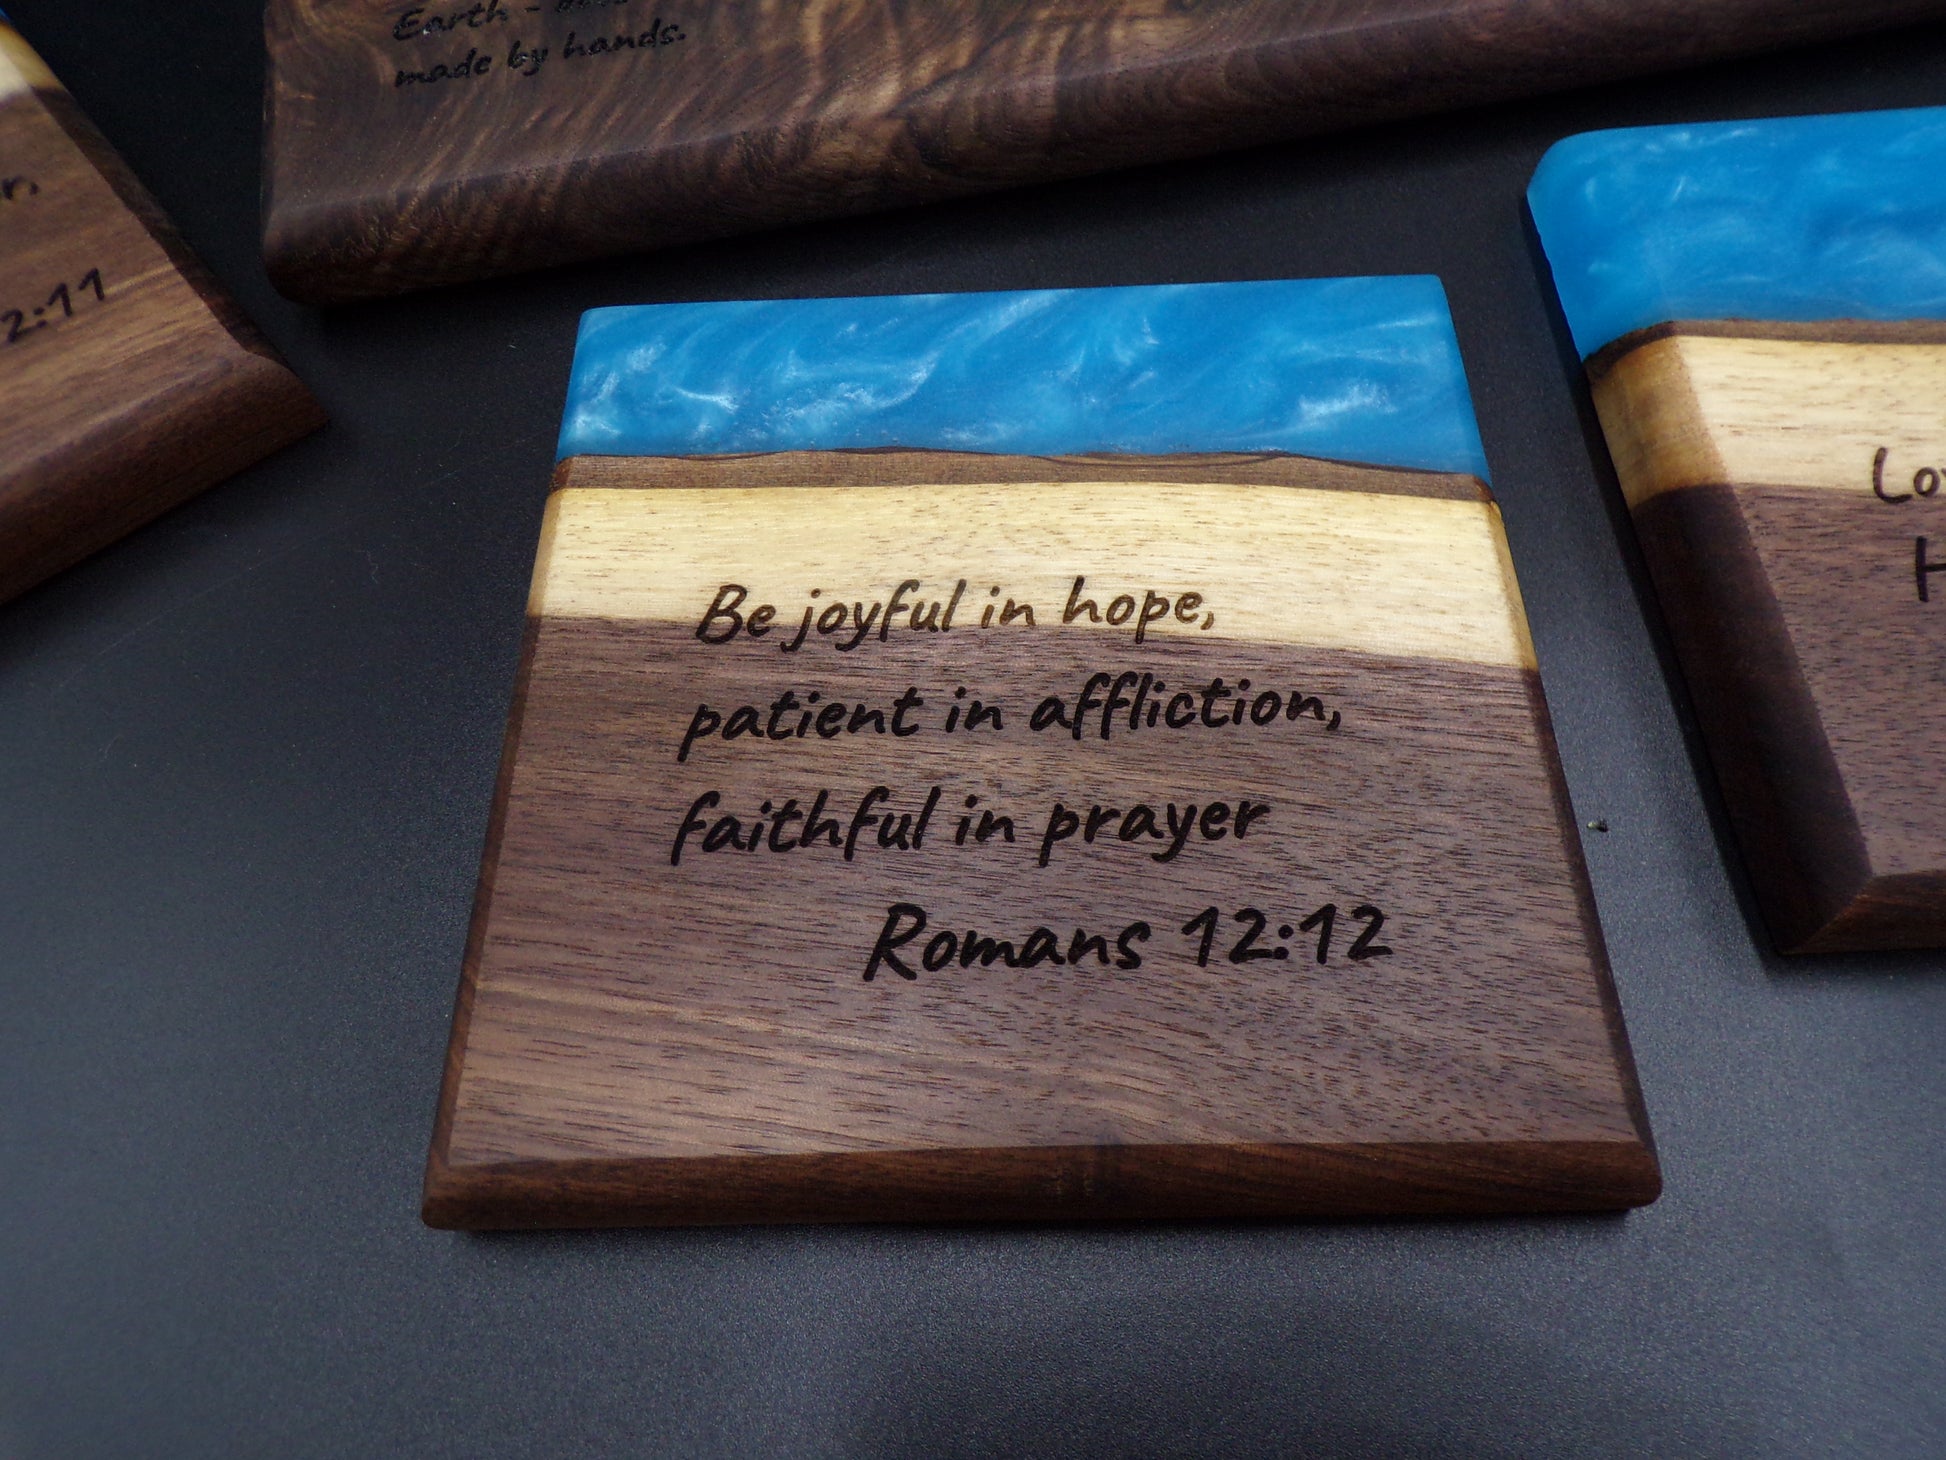 Earth -
made by hands.
2:11
Be joyful in hope,
patient in affliction,
faithful in prayer
Romans 12:12